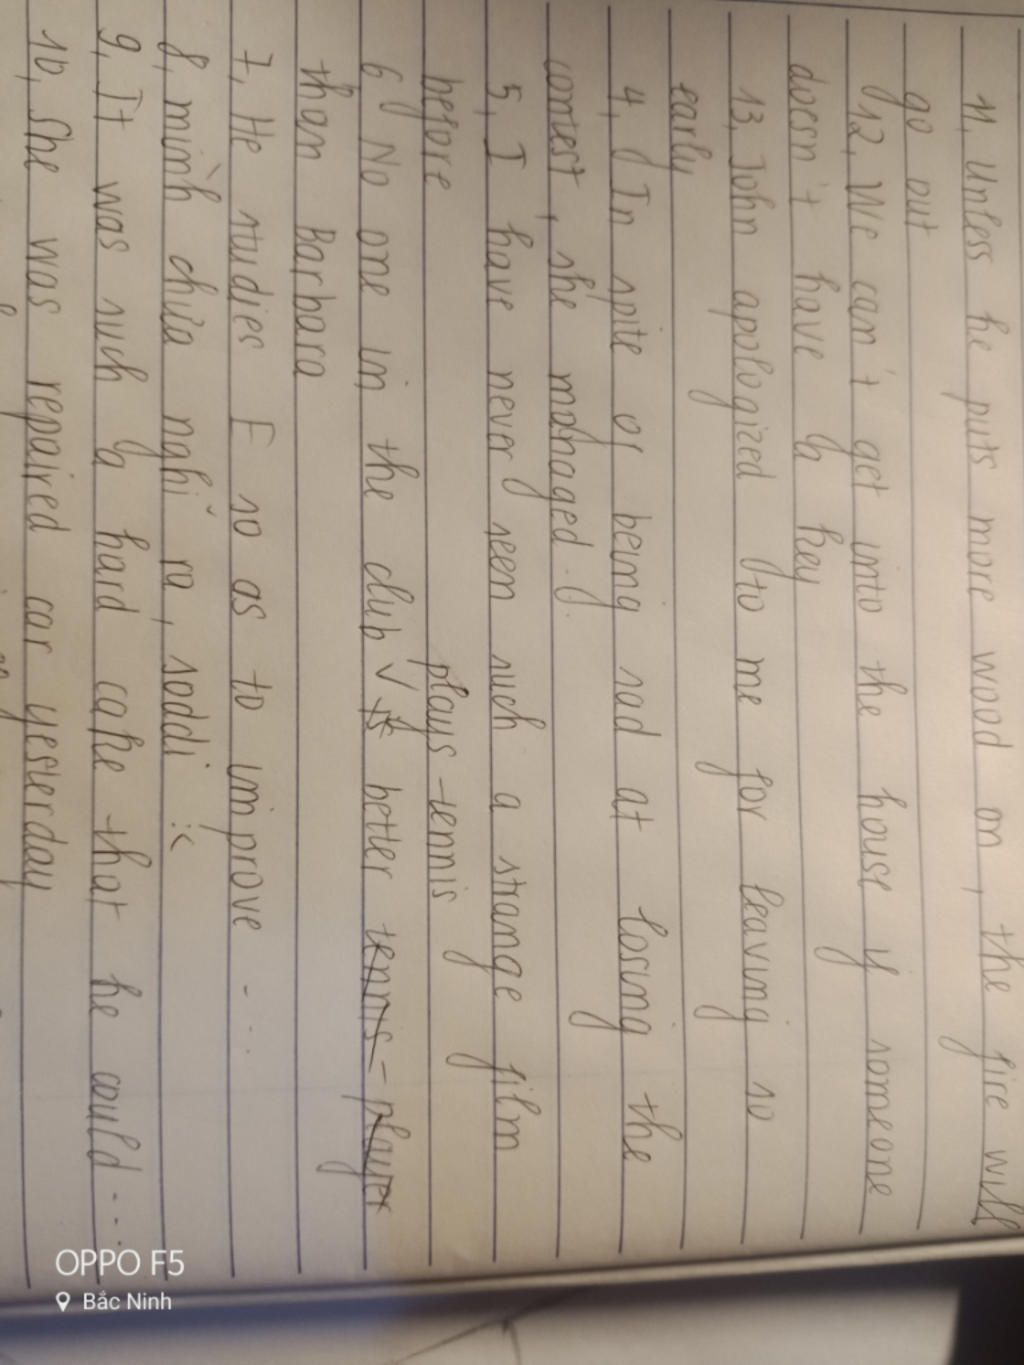 11, Unless he puts more wood on, the fire will
go out
12, We can't get into the house if someone
doesn't have a key
13, John apologized to me for leaving so
early
4, In spite of being sad at losing the
contest, she managed.
5, I have never seen such a strange film
before
plays tennis
6 No one in the club is better tennis player
than Barbara
7, He studies E so as to improve ....
8, mình chưa nghĩ ra, soddi :<
9, It was such a hard cake that he could ...
10, She was repaired car yesterday
OPPO F5
Bắc Ninh